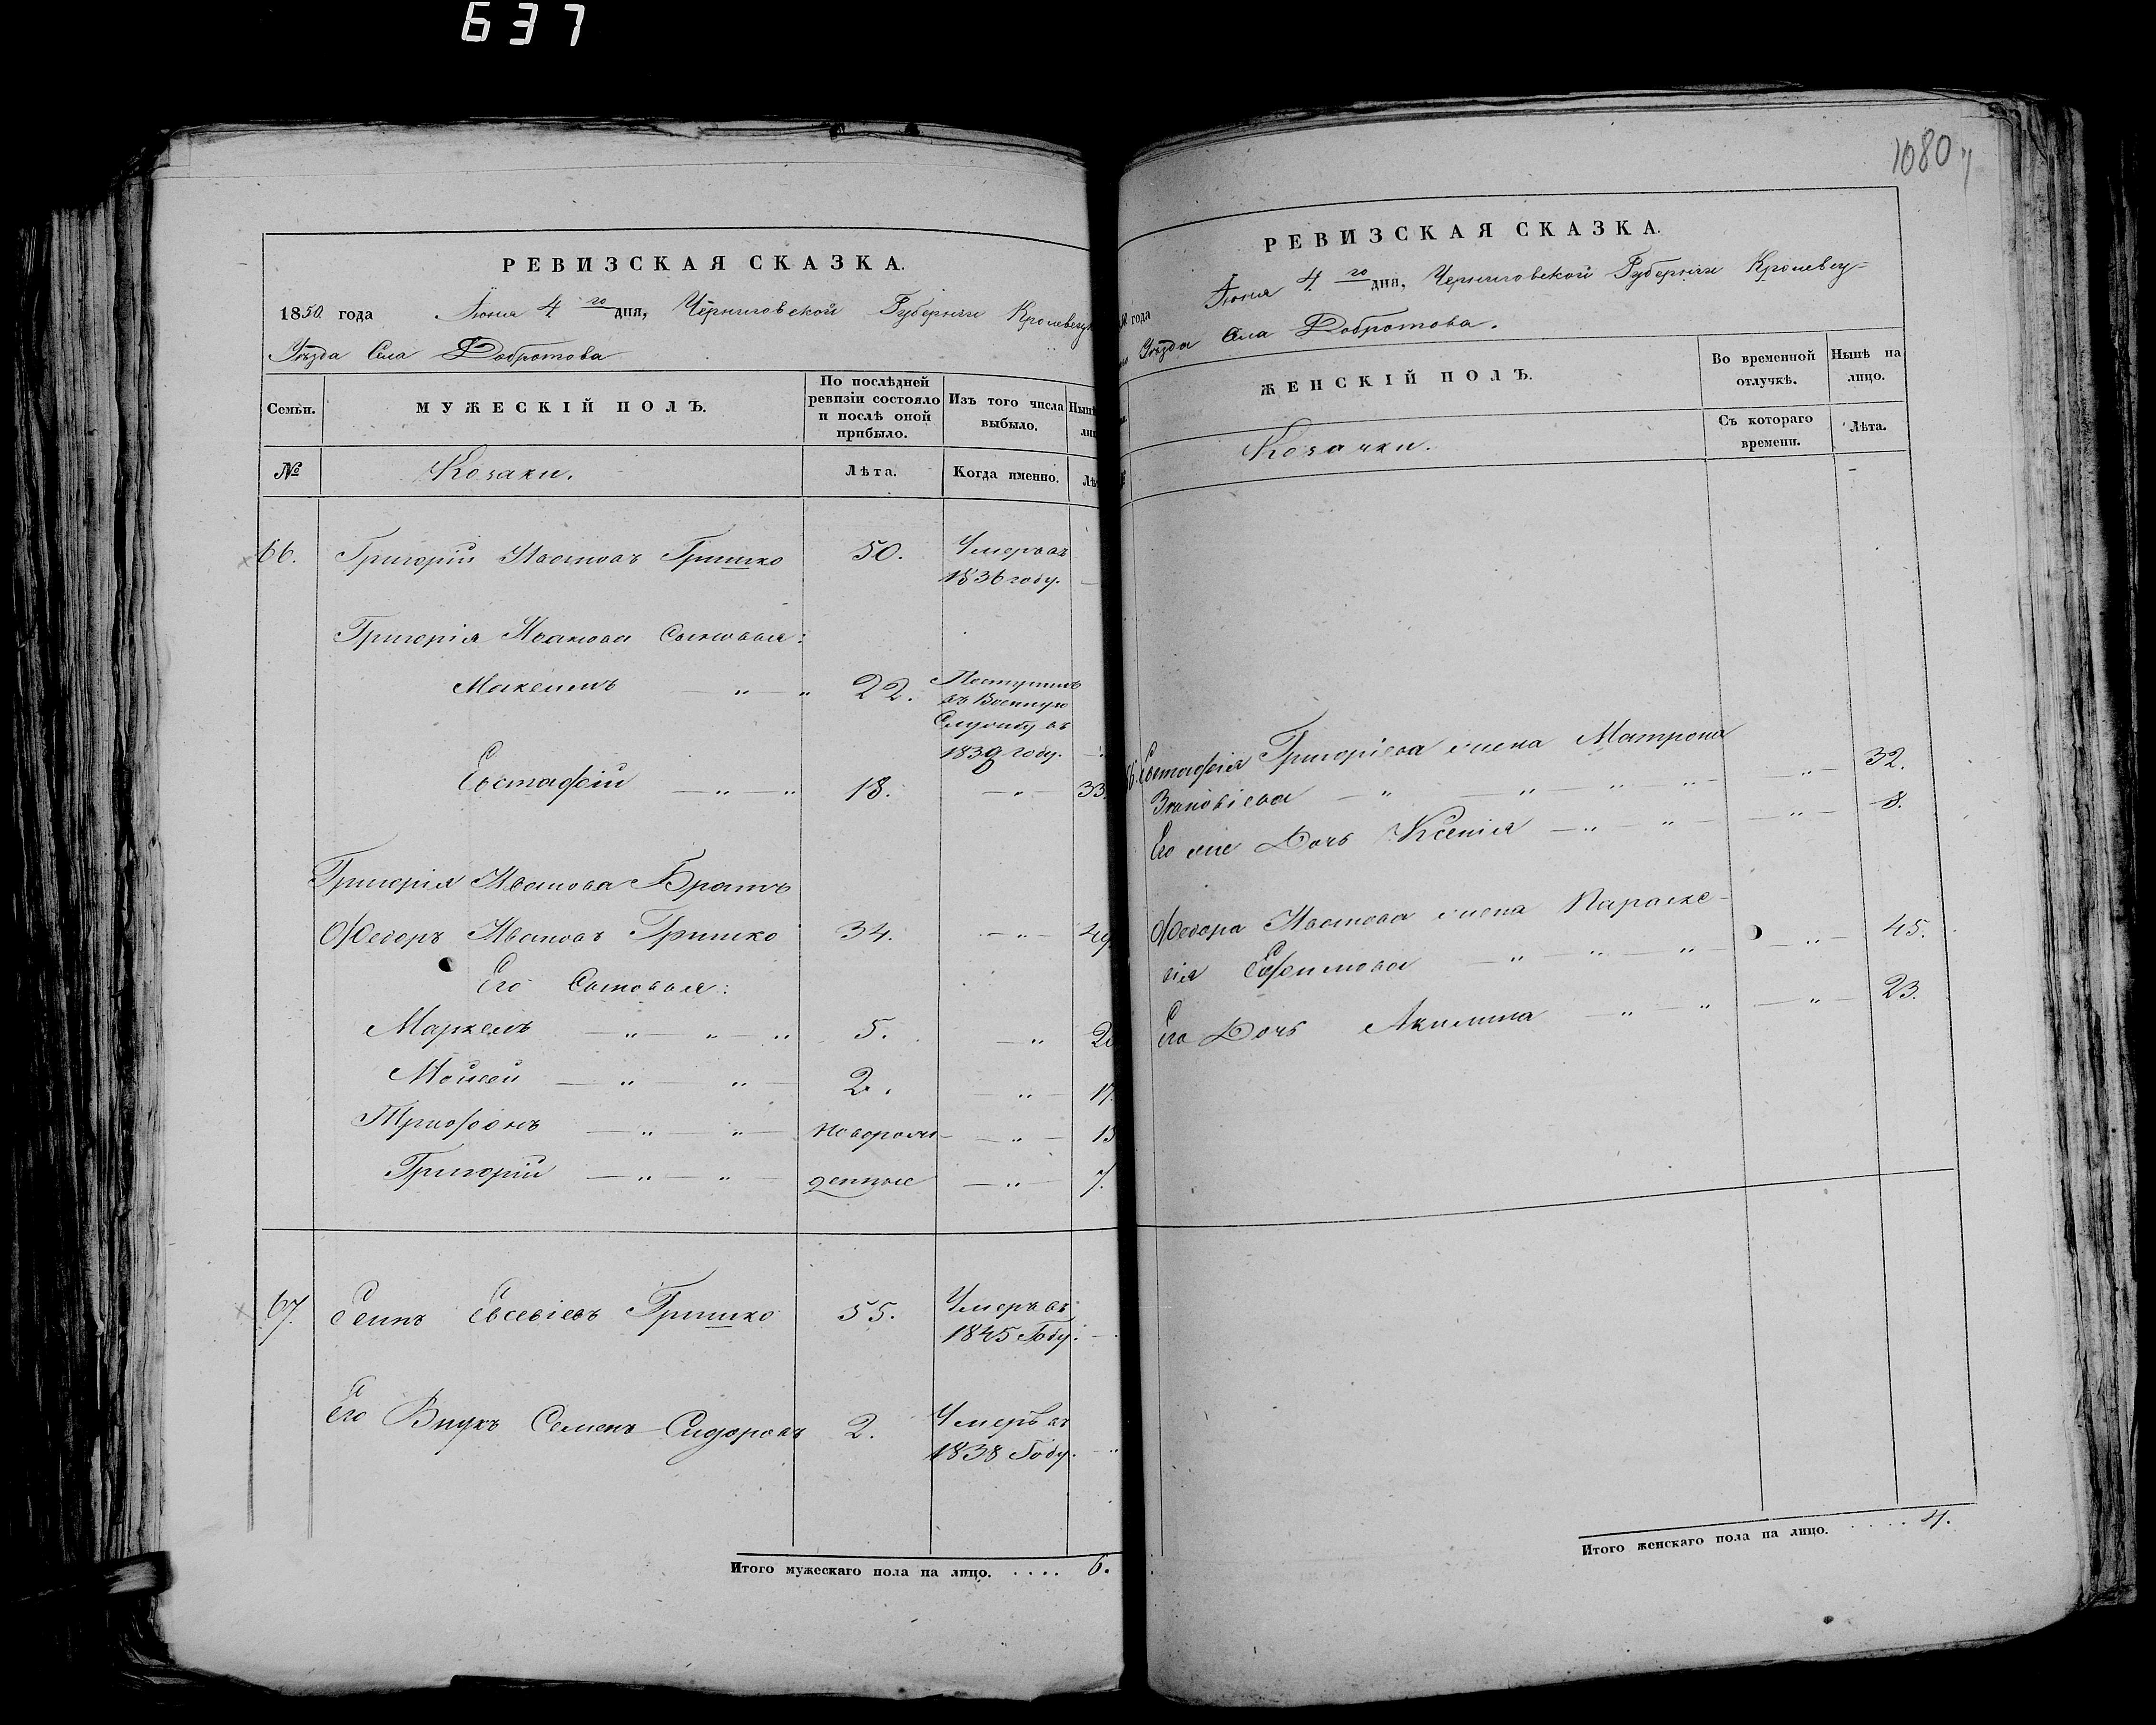 637
РЕВИЗСКАЯ СКАЗКА.
1850. года Іюня 4 го дня, Черниговской Губерніи Кролевец
Уѣзда Села Добротова
Семьи.
МУЖЕСКІЙ ПОЛЪ.
По послѣдней
ревизіи состояло
и послѣ оной
прибыло.
Изъ того числа
выбыло.
Нынѣ
№
Козаки.
Лѣта.
Когда именно.
66. Григорій Ивановъ Гришко 50. Умеръ въ
1836 году.
Григорія Иванова Сыновья:
Максимъ — " — " 22. Поступилъ
въ Военную
Службу въ
1839 году.
Евстафій — " — " 18. — " — 33.
Григорія Иванова Братъ
Ѳедоръ Ивановъ Гришко 34. — " — 49
Его Сыновья:
Маркелъ — " — " — " 5. — " 20
Мойсей — " — " — 2. — " — 17.
Трифонъ — " — " — новорож- — " — 13
Григорій — " — " — денные — " — 7.
67. Сеипъ Евсевіевъ Гришко 55. Умеръ въ
1845 Году.
Его Внукъ Семенъ Сидоровъ 2. Умеръ въ
1838 Году.
Итого мужескаго пола на лицо. . . . . 6.
1080
РЕВИЗСКАЯ СКАЗКА.
года Іюня 4 го дня, Черниговской Губерніи Кролевец-
Уѣзда Села Добротова.
ЖЕНСКІЙ ПОЛЪ.
Во временной
отлучкѣ.
Нынѣ на
лицо.
Козачки.
Съ котораго
времени.
Лѣта.
66. Евстафія Григоріева жена Матрона
Зиновіева — " — " — " — " — — " — 32.
Его же Дочь Ксенія — " — " — — " — 8.
Ѳедора Иванова жена Параске-
вія Ефимова — " — " — " — — " — 45.
Его Дочь Акилина — " — " — " — 23.
Итого женскаго пола на лицо. . . . . 4.